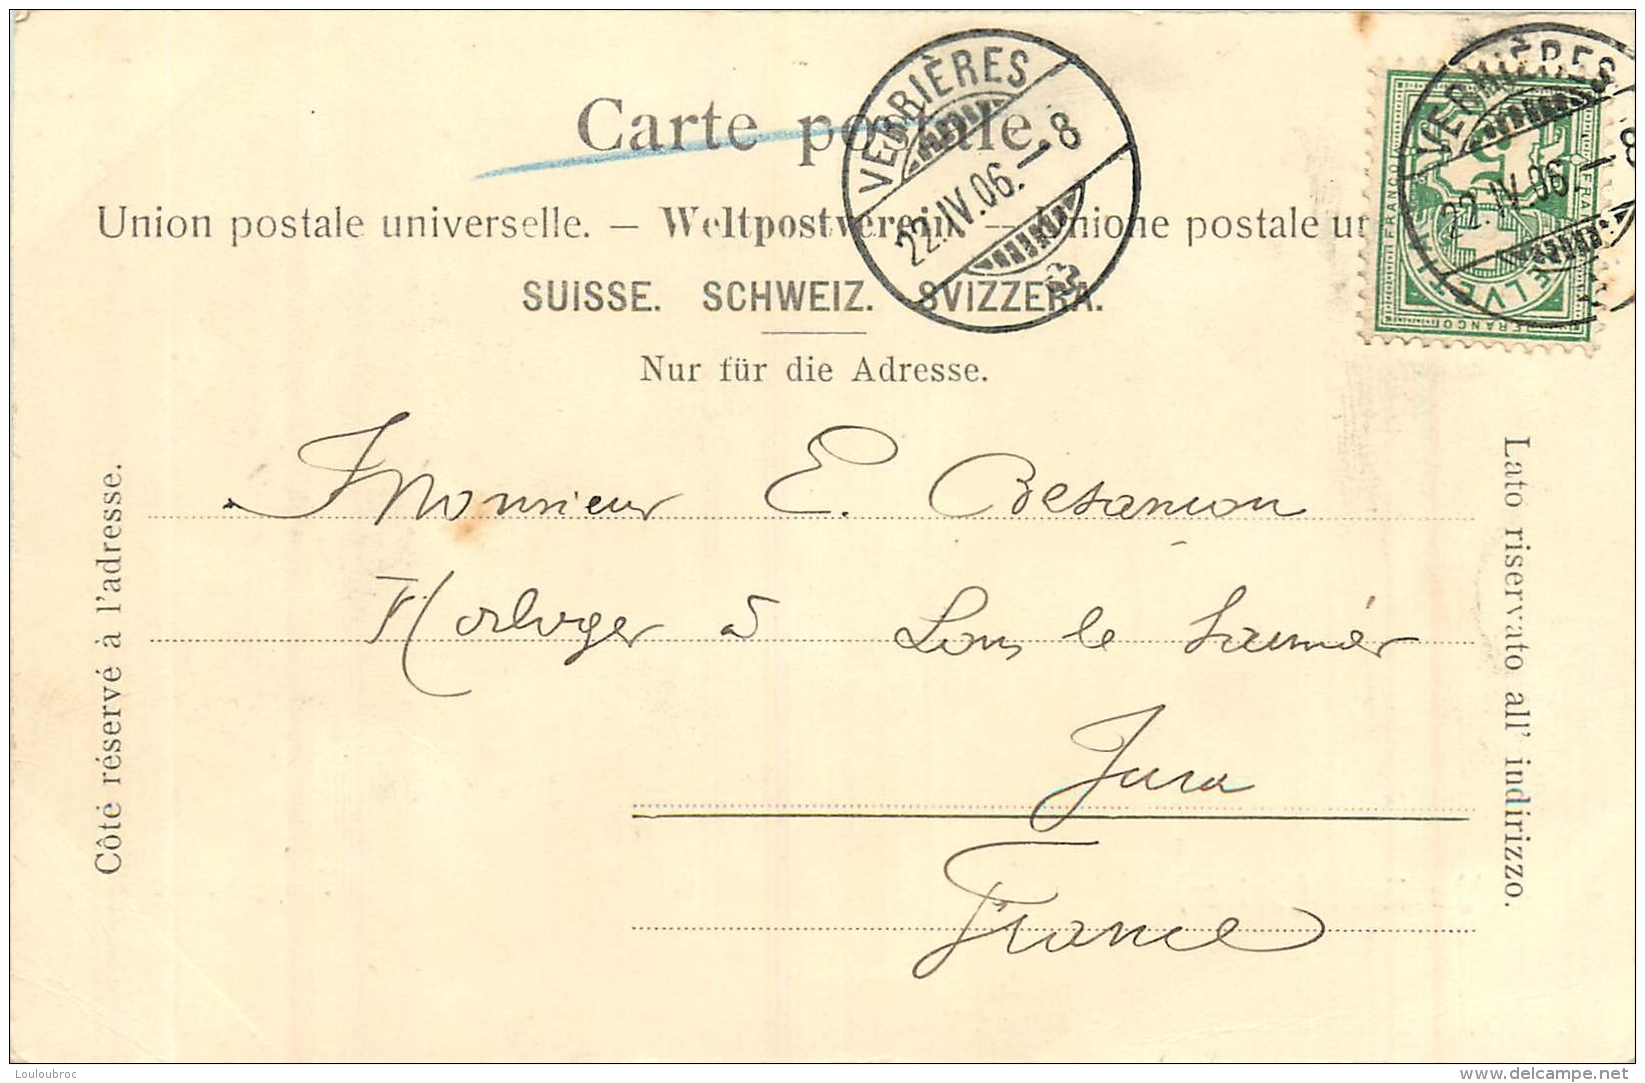 Carte postale.
Union postale universelle. — Weltpostverein. — Unione postale
SUISSE. SCHWEIZ. SVIZZERA.
Nur für die Adresse.
VERRIÈRES
22.IV.06.–8
VERRIÈRES
22.IV.06.–8
FRANCO
FRANCO
HELVETIA
Côté réservé à l'adresse.
Monsieur E. Besançon
Horloger à Lons le Saunier
Jura
France
Lato riservato all' indirizzo.
Louloubroc
www.delcampe.net